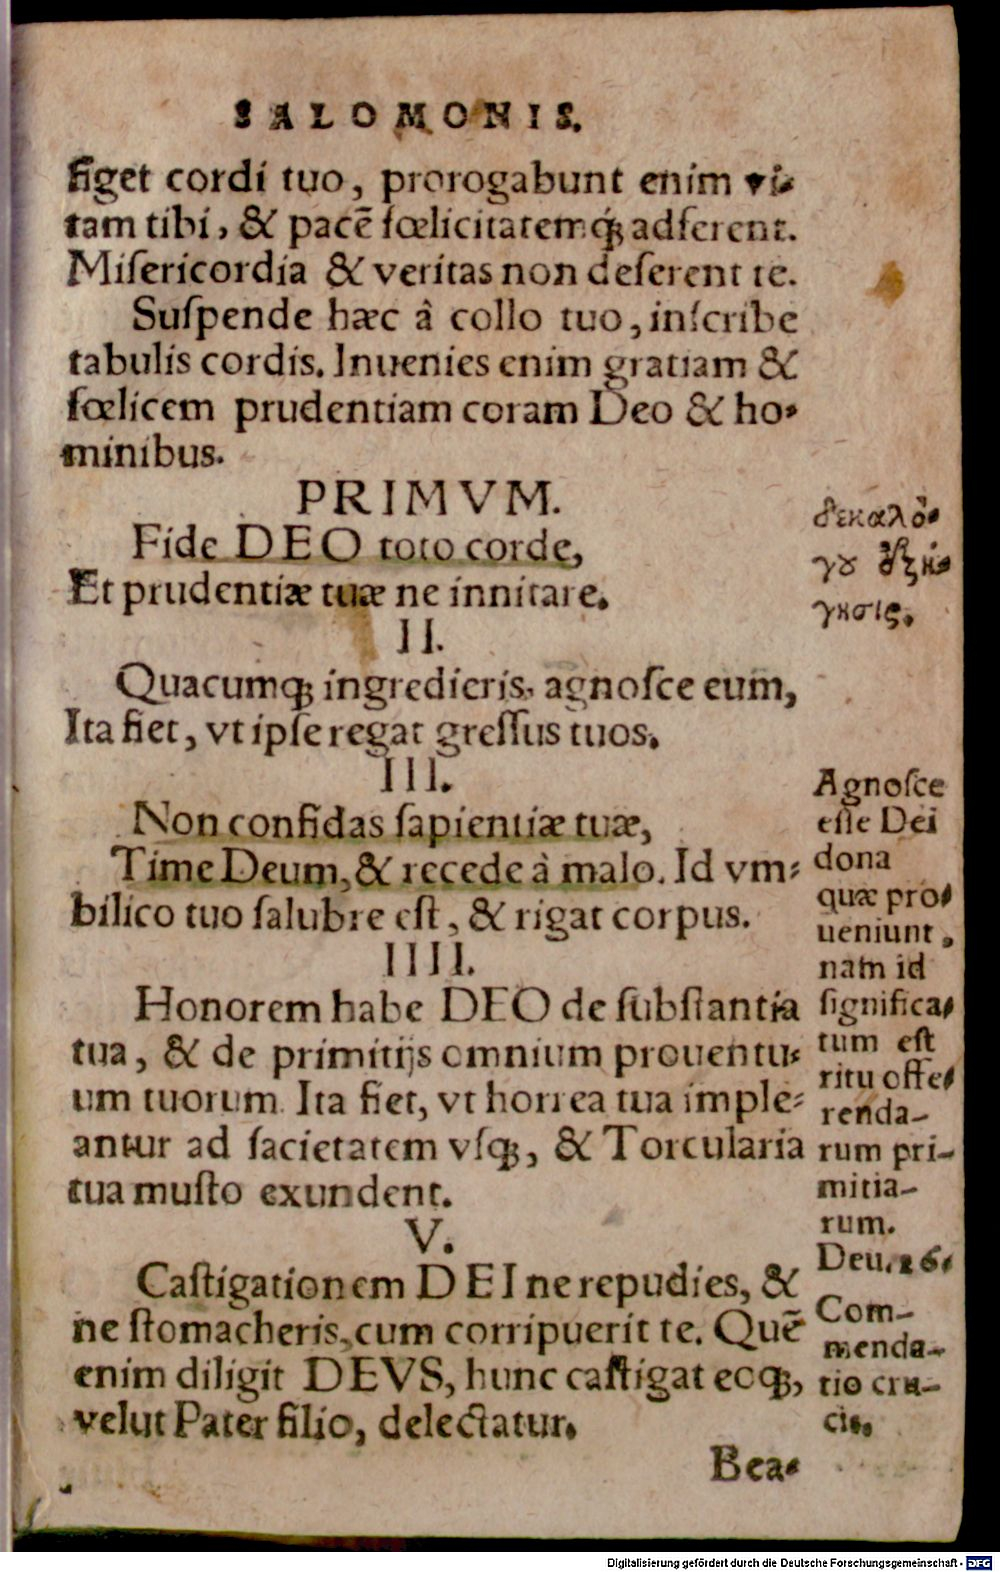 SALOMONIS.
figet cordi tuo, prorogabunt enim vi-
tam tibi, & pacē fœlicitatemq́ꝫ adferent.
Miſericordia & veritas non deſerent te.
Suſpende hæc â collo tuo, inſcribe
tabulis cordis. Inuenies enim gratiam &
fœlicem prudentiam coram Deo & ho-
minibus.
PRIMVM.
Fide DEO toto corde,
Et prudentiæ tuæ ne innitare.
II.
Quacumqꝫ ingredieris, agnoſce eum,
Ita fiet, vt ipſe regat greſſus tuos.
III.
Non confidas ſapientiæ tuæ,
Time Deum, & recede â malo. Id vm-
bilico tuo ſalubre eſt, & rigat corpus.
IIII.
Honorem habe DEO de ſubſtantia
tua, & de primitijs omnium prouentu-
um tuorum. Ita fiet, vt horrea tua imple-
antur ad ſacietatem vſqꝫ, & Torcularia
tua muſto exundent.
V.
Caſtigationem DEI ne repudies, &
ne ſtomacheris, cum corripuerit te. Quē
enim diligit DEVS, hunc caſtigat eoqꝫ,
velut Pater filio, delectatur.
Bea-
δεκαλό-
γου ἐξή-
γησις.
Agnoſce
eſſe Dei
dona
quæ pro-
ueniunt,
nam id
significa-
tum eſt
ritu offe-
renda-
rum pri-
mitia-
rum.
Deu. 26.
Com-
menda-
tio cru-
cis.
Digitalisierung gefördert durch die Deutsche Forschungsgemeinschaft - DFG